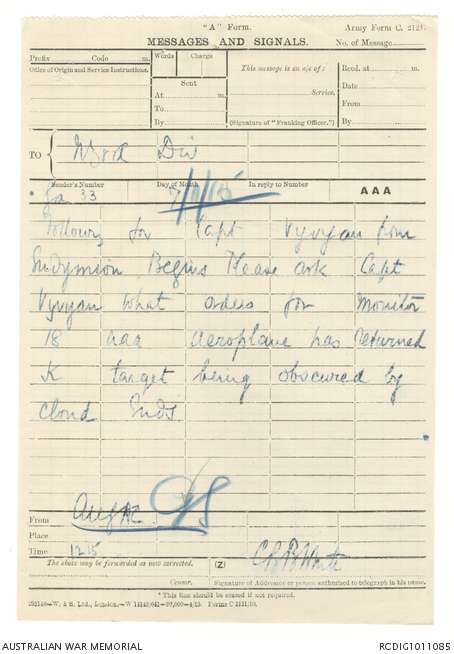 "A" Form. Army Form C. 2121.
MESSAGES AND SIGNALS. No. of Message
Prefix Code m. Words Charge This message is on a/c of : Recd. at m.
Office of Origin and Service Instructions. Sent Service. Date
At m. From
To
By (Signature of "Franking Officer.") By
TO { NZ & A Div
* Sender's Number Day of Month In reply to Number AAA
Ga 33
Following for Capt Vyvyan from
Endymion Begins Please ask Capt
Vyvyan what orders for Monitor
18 aaa aeroplane has returned
K target being obscured by
cloud Ends.
From
Place
Time 1215
The above may be forwarded as now corrected. (Z) CBB White
Censor. Signature of Addressor or person authorised to telegraph in his name.
* This line should be erased if not required.
Forms C 2121/10.
AUSTRALIAN WAR MEMORIAL RCDIG1011085